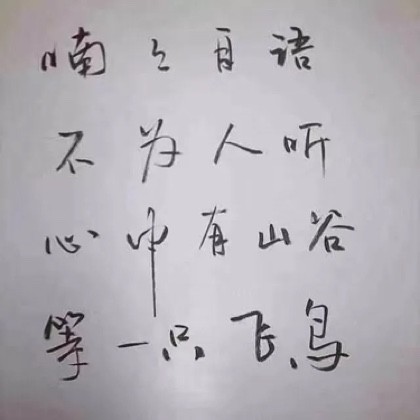 喃々自语
不为人听
心中有山谷
等一只飞鸟